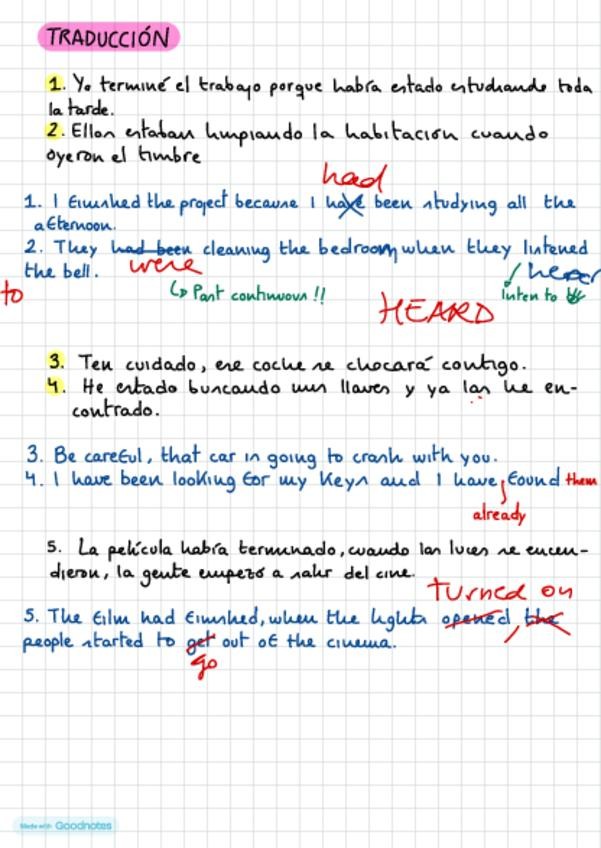 TRADUCCIÓN
1. Yo terminé el trabajo porque había estado estudiando toda
la tarde.
2. Ellos estaban limpiando la habitación cuando
oyeron el timbre
had
1. I finished the project because I have been studying all the
afternoon.
2. They had been cleaning the bedroom when they listened
the bell.
were
hear
to
↳ Past continuous !!
HEARD
listen to
3. Ten cuidado, ese coche se chocará contigo.
4. He estado buscando mis llaves y ya las he en-
contrado.
3. Be careful, that car is going to crash with you.
4. I have been looking for my keys and I have found them
already
5. La película había terminado, cuando las luces se encen-
dieron, la gente empezó a salir del cine.
turned on
5. The film had finished, when the lights opened, the
people started to get out of the cinema.
go
Made with Goodnotes